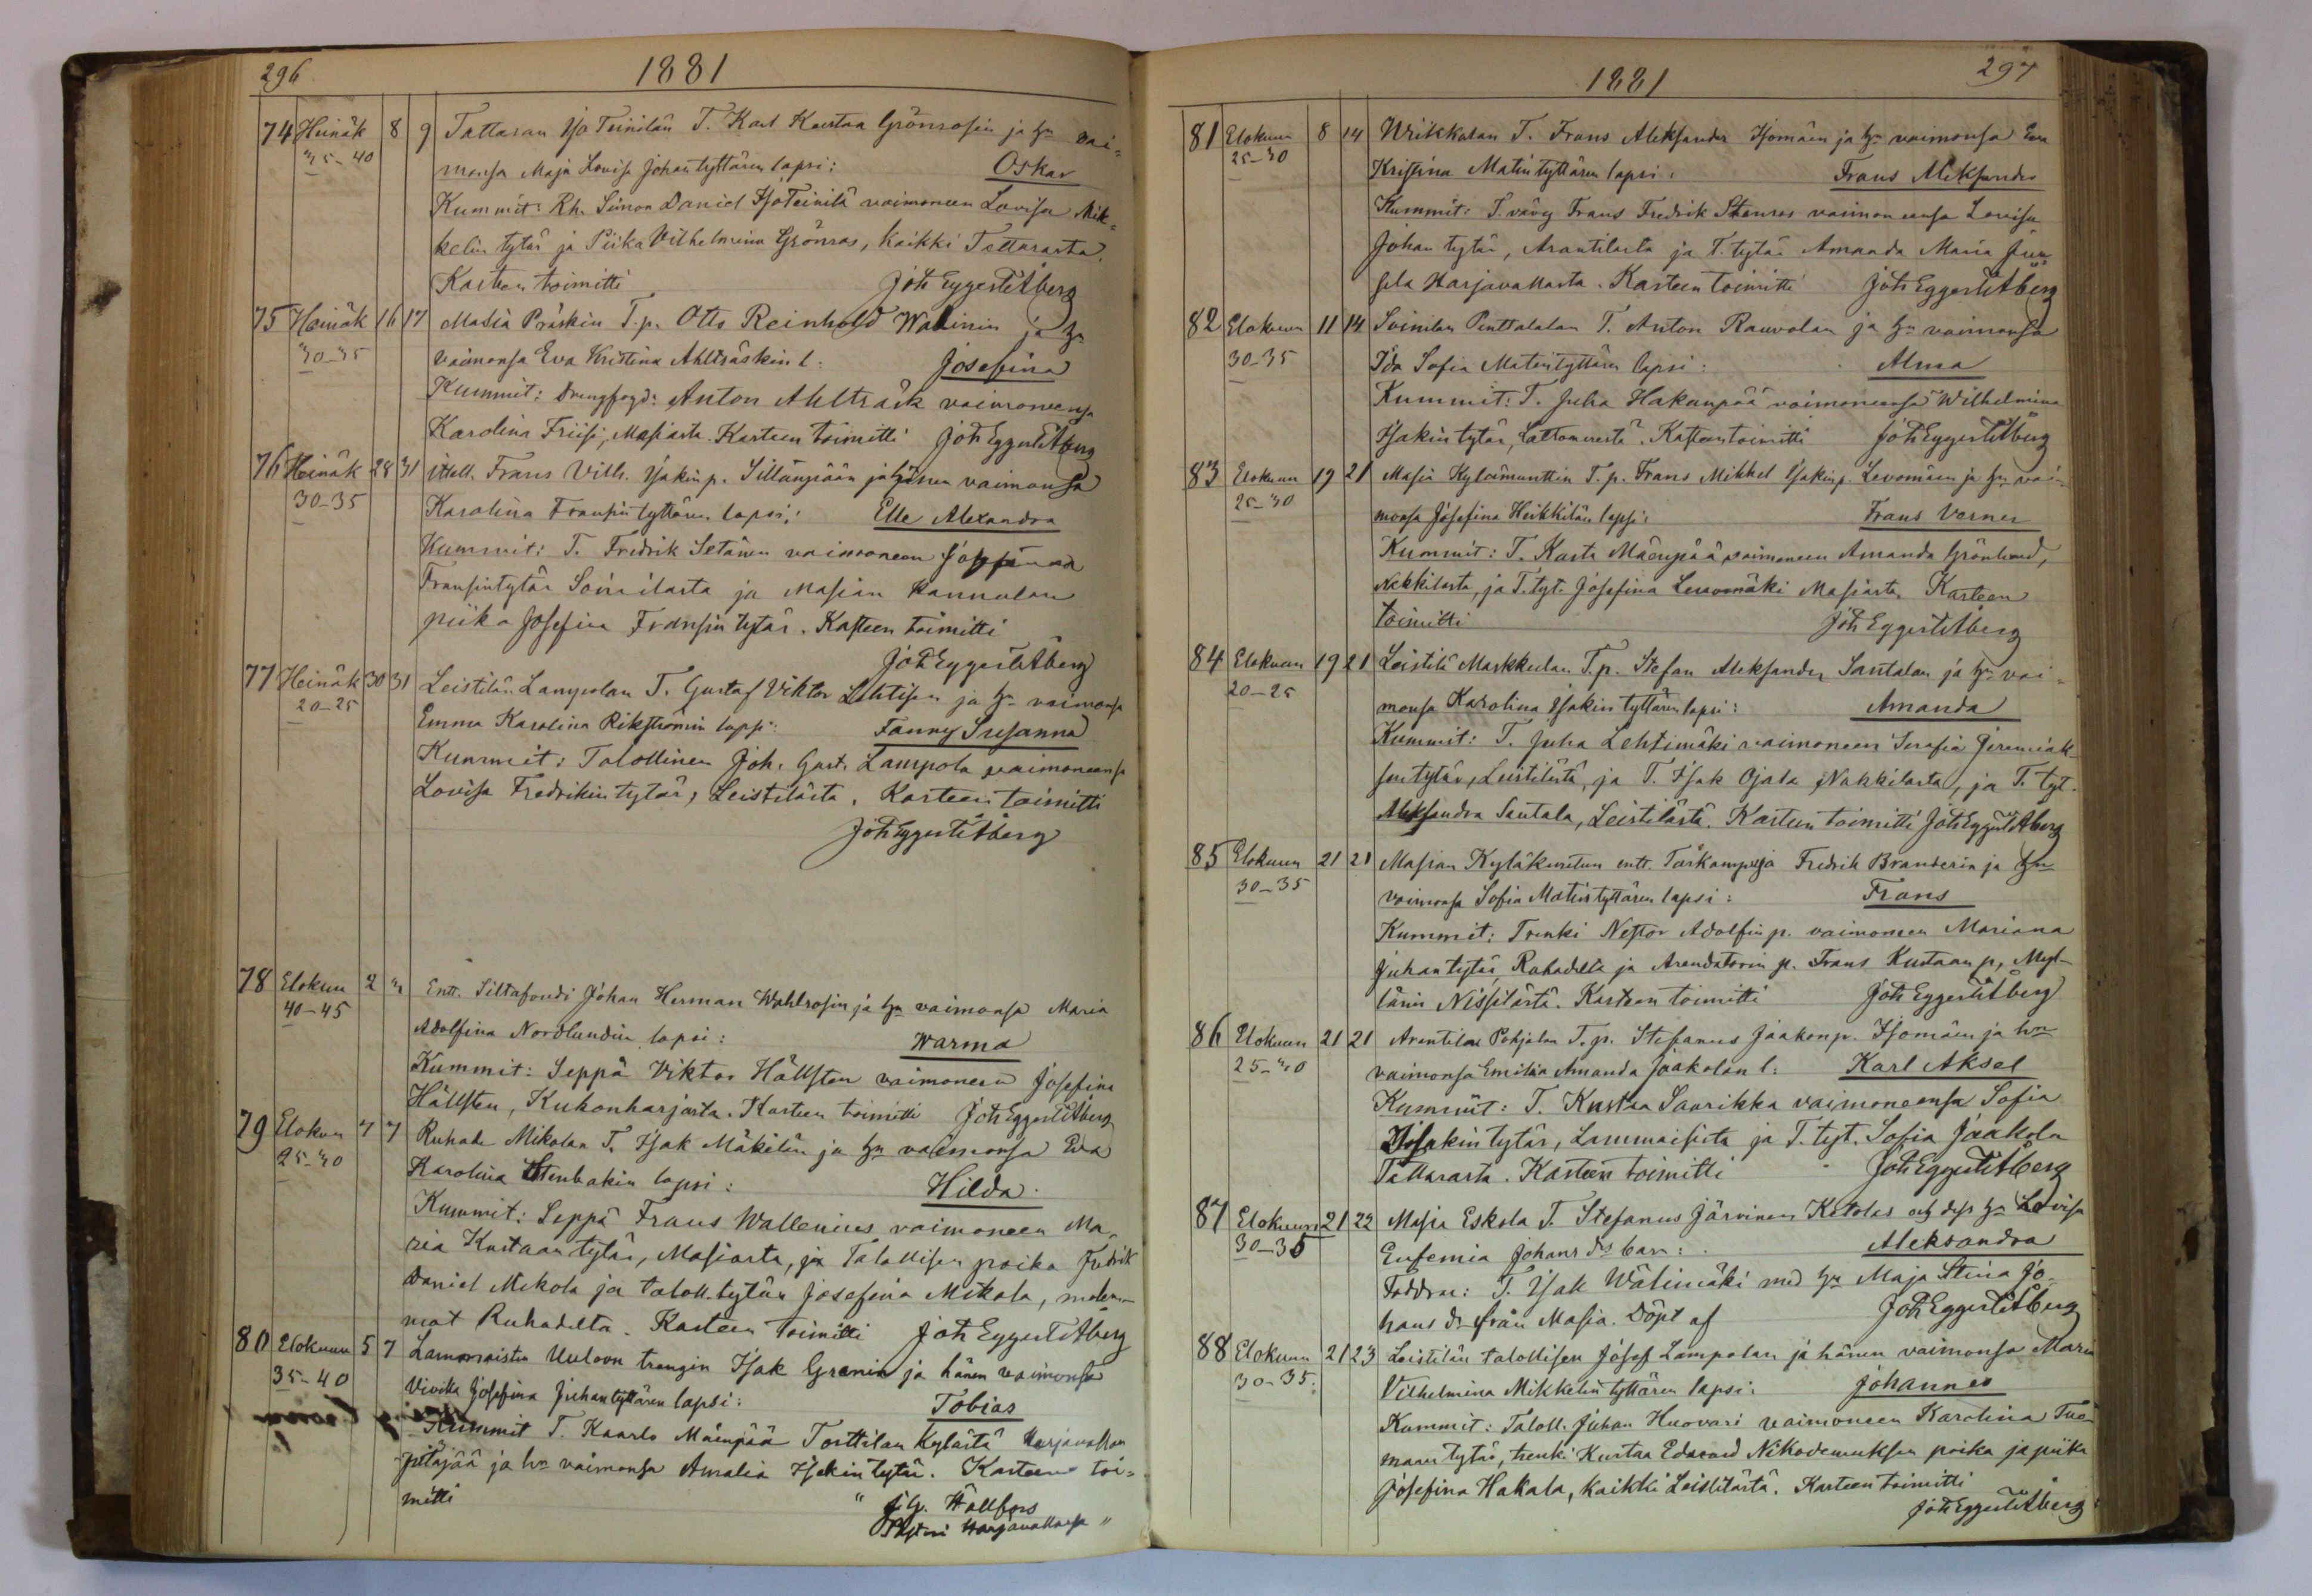 296.
1881
74 Heinäk 8 9 Tattaran Iso Teinilän T. Karl Kustaa Grönrosin ja hn vai-
25-40 monsa Maja Lovisa Johantyttären lapsi: Oskar
Kummit: Rh. Simon Daniel IsoTeinilä vaimoneen Lovisa Mik-
kelin tytär ja Piika Vilhelmina Grönros, kaikki Tattarasta.
Kasteen toimitti Joh Eggert Åberg
75 Heinäk 16 17 Masia Präskin T.p. Otto Reinhold Wallinin ja hn
30-35 vaimonsa Eva Kristina Ahlträskin l: Josefina
Kummit: Drengfogd: Anton Ahlträsk vaimoneensa
Karolina Friisi, Masiasta. Kasteen toimitti Joh Eggert Åberg
76 Heinäk 28 31 Itsell. Frans Vilh. Isakin p. Sillänpään ja hänen vaimonsa
30-35 Karolina Fransin tyttären lapsi: Elle Alexandra
Kummit: T. Fredrik Setänen vaimoneen Josefina
Fransintytär Soinilasta ja Masian Kannulan
piika Josefina Fransin tytär. Kasteen toimitti
Joh Eggert Åberg
77 Heinäk 30 31 Leistilän Lampolan T. Gustaf Viktor Lehtisen ja hn vaimonsa
20-25 Emma Karolina Rikströmin lapsi: Fanny Susanna
Kummit: Talollinen Joh. Gust. Lampola vaimoneensa
Lovisa Fredrikin tytär, Leistilästä. Kasteen toimitti
Joh Eggert Åberg
78 Elokuu 2 " Entt. Siltafouti Johan Herman Wahlrosin ja hn vaimonsa Maria
40-45 Adolfina Nordlundin lapsi: Warma
Kummit: Seppä Viktor Hällsten vaimoneen Josefina
Hällsten, Kukonharjasta. Kasteen toimitti Joh Eggert Åberg
79 Elokuu 7 7 Ruhade Mikolan T. Isak Mäkilän ja hn vaimonsa Eva
25-30 Karolina Stenbakin lapsi: Hilda.
Kummit: Seppä Frans Wallenius vaimoneen Ma-
ria Kustaan tytär, Masiasta, ja Talollisen poika Fredrik
Daniel Mikola ja taloll. tytär Josefina Mikola, molem-
mat Ruhadelta. Kasteen toimitti Joh Eggert Åberg
80 Elokuun 5 7 Lammaisten Uuloon trengin Isak Granin ja hänen vaimonsa
35-40 Vivika Josefina Juhan tyttären lapsi: Tobias
Kummit T. Kaarlo Mäenpää Torttilan Kylästä Harjavallan
pitäjää ja hn vaimonsa Amalia Isakin tytär. Kasteen toi-
mitti " J.G. Hällfors
Pastori Harjavallassa "
297
1881
81 Elokuun 8 14 Wrikkalan T. Frans Aleksander Isomäen ja hn vaimonsa Eva
25-30 Kristina Matin tyttären lapsi: Frans Aleksander
Kummit: T. vävy Frans Fredrik Stenros vaimoneensa Lovisa
Johan tytär, Arantilasta ja T. tytär Amanda Maria Juu-
sela Harjavallasta. Kasteen toimitti Joh Eggert Åberg
82 Elokuun 11 14 Soinilan Penttalalan T. Anton Rauvolan ja hn vaimonsa
30-35 Ida Sofia Matintyttären lapsi: Alma
Kummit: T. Juha Hakanpää vaimoneensa Wilhelmina
Isakin tytär, Lattomerestä. Kasteen toimitti Joh Eggert Åberg
83 Elokuun 19 21 Masia Kylämunttin T.p. Frans Mikkel Isakinp. Levomäen ja hn vai-
25-30 monsa Josefina Heikkilän lapsi: Frans Verner
Kummit: T. Kusta Mäenpää vaimoneen Amanda Grönlund,
Nakkilasta, ja T. tyt. Josefina Levomäki Masiasta. Kasteen
toimitti Joh Eggert Åberg
84 Elokuun 19 21 Leistilä Markkulan T.p. Stefan Aleksander Santalan ja hn vai-
20-25 monsa Karolina Isakin tyttären lapsi: Amanda
Kummit: T. Juha Lehtimäki vaimoneen Serafia Jeremiak-
sentytär, Leistilästä, ja T. Isak Ojala Nakkilasta, ja T. tyt.
Aleksandra Santala, Leistilästä. Kasteen toimitti Joh Eggert Åberg
85 Elokuun 21 21 Masian Kyläkunttun entt. Torkampuja Fredrik Branderin ja hn
30-35 vaimonsa Sofia Matin tyttären lapsi: Frans
Kummit: Trenki Nestor Adolfin p. vaimoneen Mariana
Juhan tytär, Ruhadelta ja Arendatorin p. Frans Kustaan p, Myl-
lärin Nissilästä. Kasteen toimitti Joh Eggert Åberg
86 Elokuun 21 21 Arantilan Pohjalan T.p. Stefanus Jaakonp. Isomäen ja hn
25-30 vaimonsa Emilia Amanda Jaakolan l: Karl Aksel
Kummit: T. Kustaa Saarikka vaimoneensa Sofia
Iisakin tytär, Lammaisista ja T. tyt. Sofia Jaakola
Tattarasta. Kasteen toimitti Joh Eggert Åberg
87 Elokuun 21 22 Masia Eskola T. Stefanus Järvinen Ketolas och dess hu Lovisa
30-35 Eufemia Johans ds barn: Aleksandra
Faddrar: T. Isak Wälimäki med hu Maja Stina Jo-
hans dr från Masia. Döpt af Joh Eggert Åberg
88 Elokuun 21 23 Leistilän talollisen Josef Lampolan ja hänen vaimonsa Maria
30-35. Vilhelmina Mikkelin tyttären lapsi: Johannes
Kummit: Taloll. Juhan Huovari vaimoneen Karolina Tuo-
maan tytär, trenki Kustaa Edvard Nikodemuksen poika ja piika
Josefina Hakala, kaikki Leistilästä. Kasteen toimitti
Joh Eggert Åberg